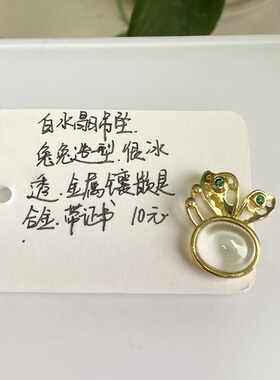 白水晶吊坠
兔兔造型.很冰
透.金属镶嵌是
合金.带证书 10元.